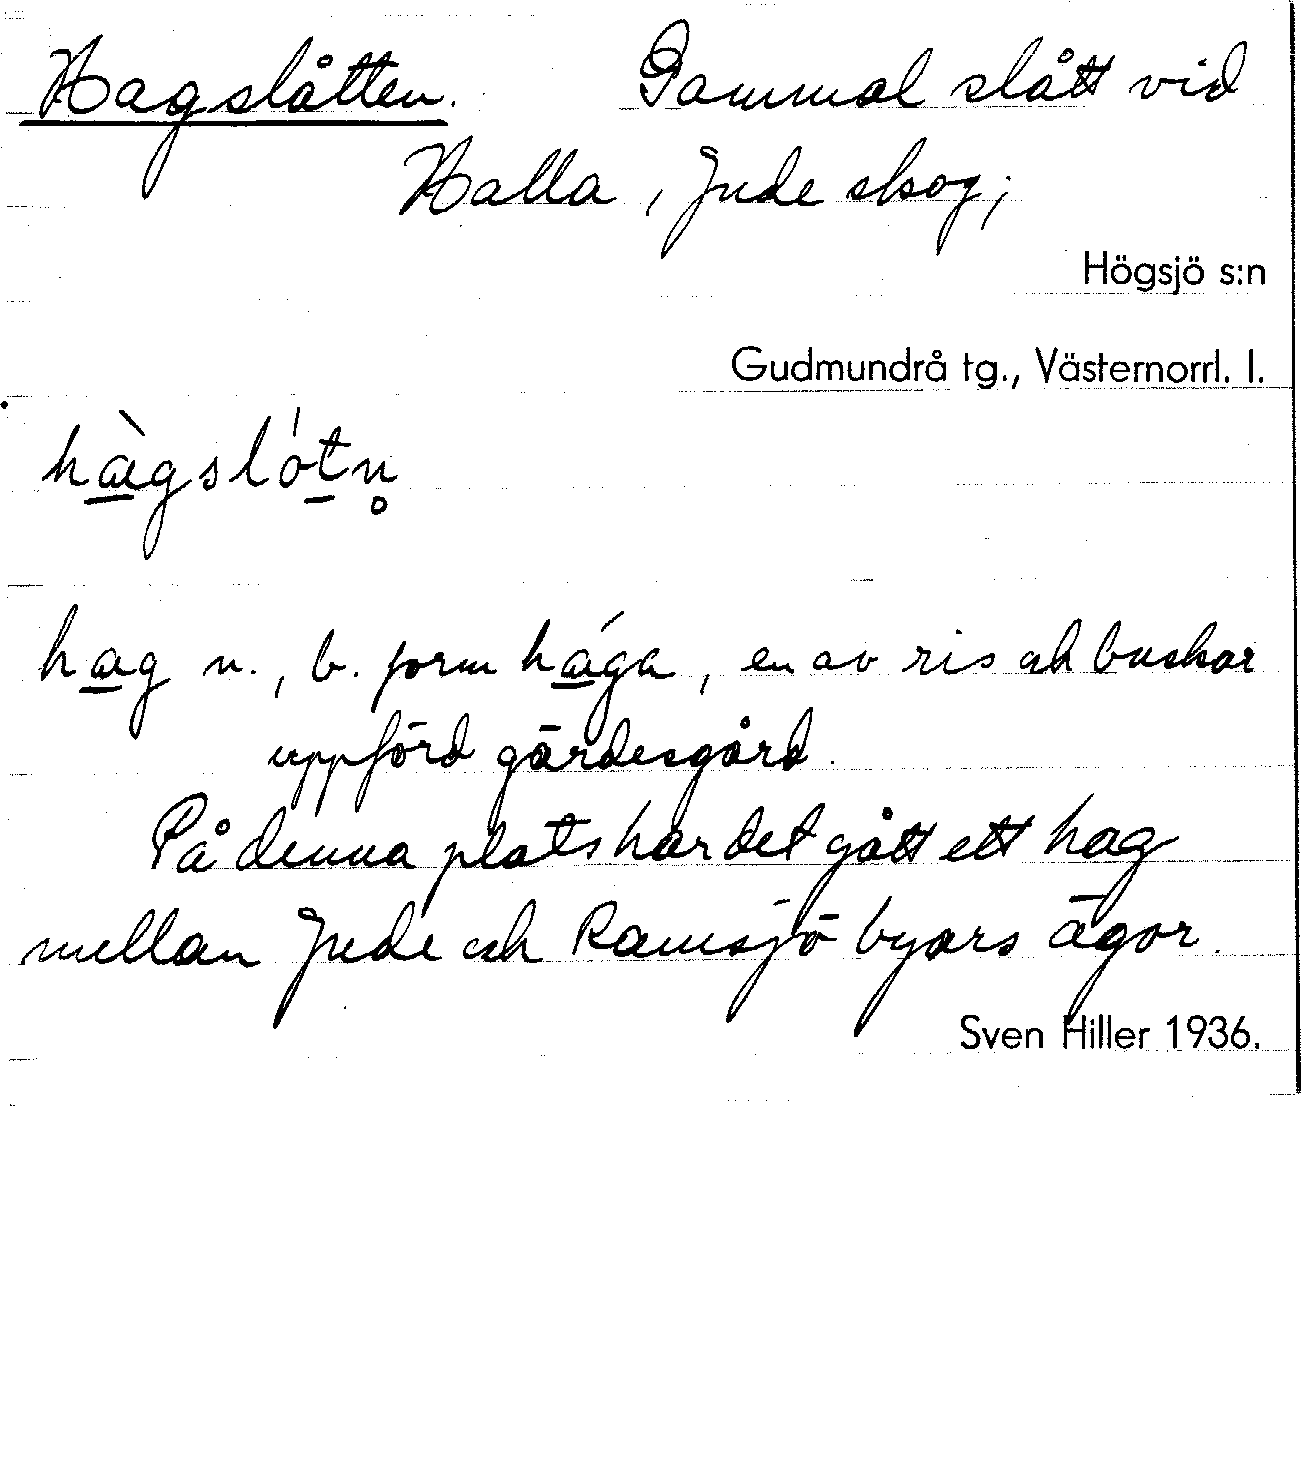 Hagslåtten. Gammal slått vid
Halla, Jude skog;
Högsjö s:n
Gudmundrå tg., Västernorrl. l.
hàgslótn̥
hag n., b. form hága, en av ris och buskar
uppförd gärdesgård.
På denna plats har det gått ett hag
mellan Jude och Ramsjö byars ägor.
Sven Hiller 1936.